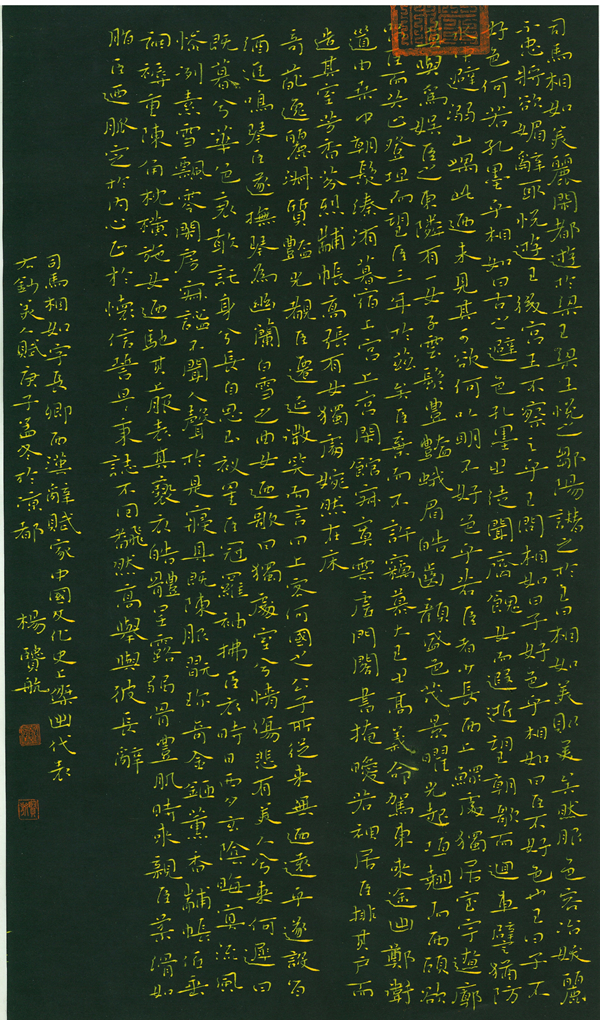 司馬相如美麗閑都遊於梁王梁王悅之鄒陽譖之於王曰相如美則美矣然服色容冶妖麗
不忠將欲媚辭取悅遊王後宮王不察之乎王問相如曰子好色乎相如曰臣不好色也王曰子不
好色何若孔墨乎相如曰古之避色孔墨之徒聞齊餽女而遐逝望朝歌而迴車譬猶防
水避溺山隅此迺未見其可欲何以明不好色乎若臣者少長西土鰥處獨居室宇遼廓
莫與為娛臣之東隣有一女子雲髮豐豔蛾眉皓齒顏盛色茂景曜光起恒翹翹而西顧欲
留臣而共止登垣而望臣三年於茲矣臣棄而不許竊慕大王之高義命駕東來途出鄭衛
道由桑中朝發溱洧暮宿上宮上宮閑館寂寞雲虛門閣晝掩曖若神居臣排其戶而
造其室芳香芬烈黼帳高張有女獨處婉然在床
奇葩逸麗淑質豔光覩臣遷延微笑而言曰上客何國之公子所從來無迺遠乎遂設旨
酒進鳴琴臣遂撫琴為幽蘭白雪之曲女迺歌曰獨處室兮情傷悲有美人兮來何遲日
既暮兮華色衰敢託身兮長自思玉釵罣臣冠羅袖拂臣衣時日西夕玄陰晦冥流風
慘冽素雪飄零閑房寂謐不聞人聲於是寢具既陳服翫珍奇金鉔薰香黼帳低垂
裀褥重陳角枕橫施女迺馳其上服表其褻衣皓體呈露弱骨豐肌時來親臣柔滑如
脂臣迺脈定於內心正於懷信誓旦秉誌不回翻然高舉與彼長辭
司馬相如字長卿西漢辭賦家中國文化史上傑出代表
右錄美人賦庚子孟冬於涼都 楊贇航